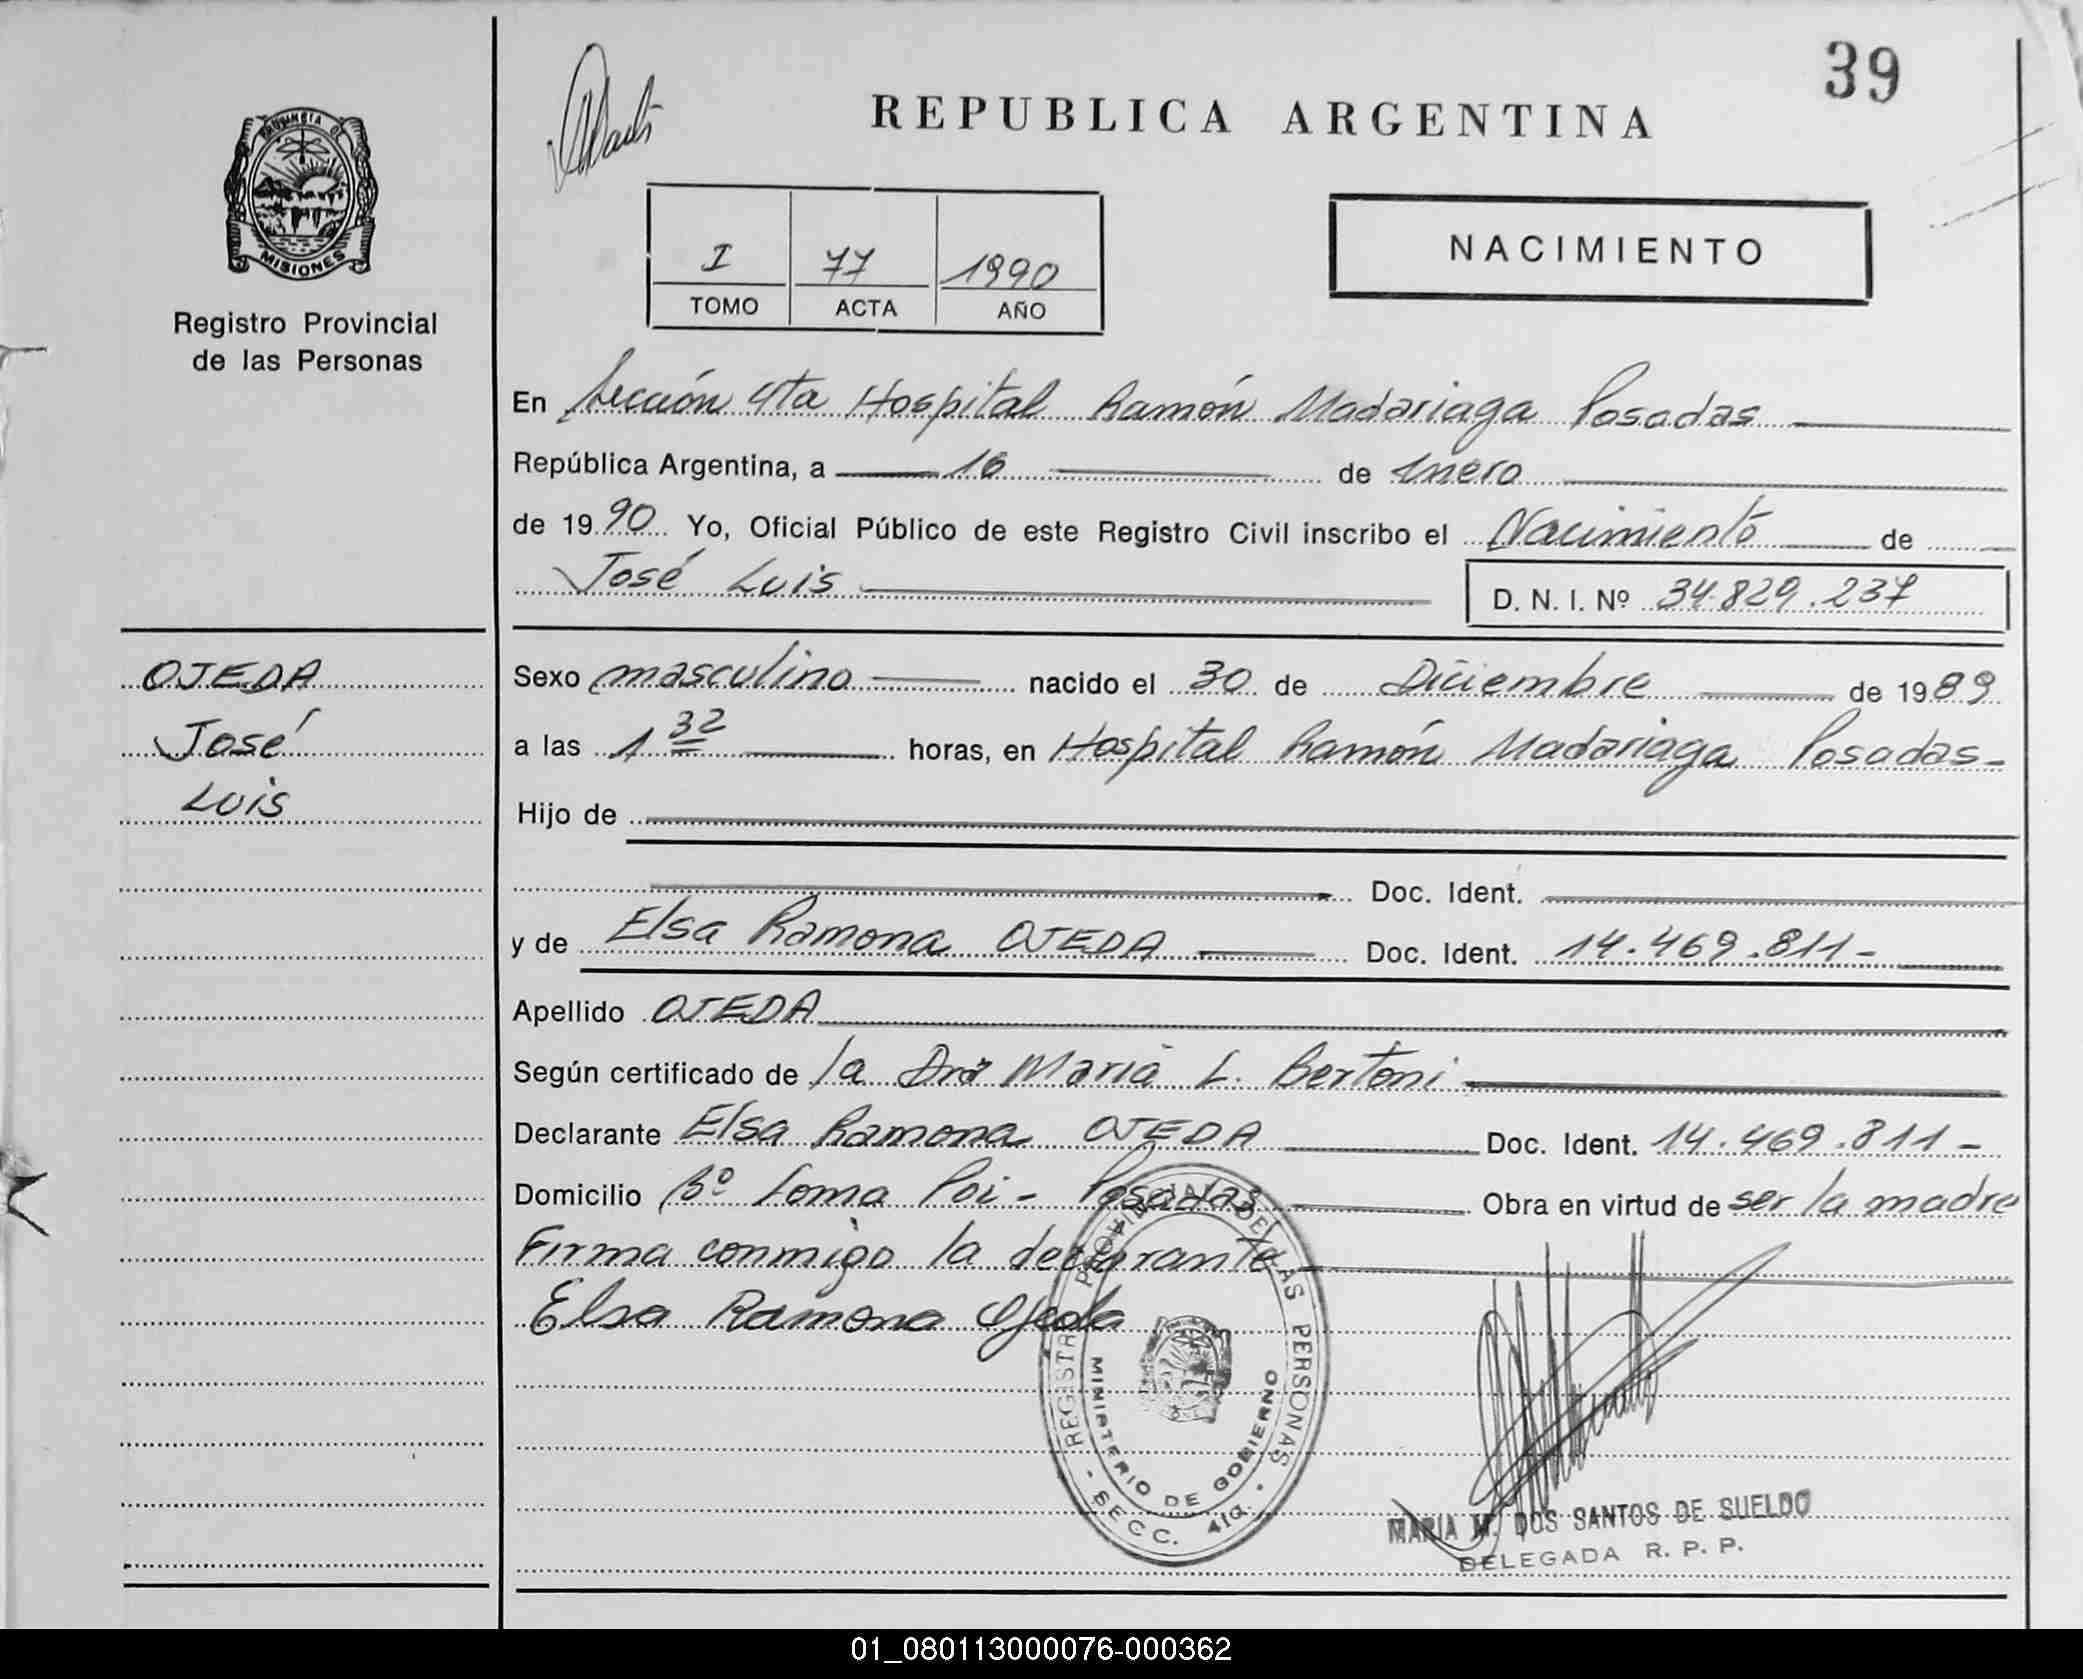 39
REPUBLICA ARGENTINA
PROVINCIA DE
MISIONES
Registro Provincial
de las Personas
NACIMIENTO
I 77 1990
TOMO ACTA AÑO
En Sección 4ta Hospital Ramón Madariaga Posadas
República Argentina, a 16 de Enero
de 1990 Yo, Oficial Público de este Registro Civil inscribo el Nacimiento de
José Luis D. N. I. Nº 34.829.237
OJEDA
José
Luis
Sexo masculino nacido el 30 de Diciembre de 1989
a las 1 32 horas, en Hospital Ramón Madariaga Posadas-
Hijo de
Doc. Ident.
y de Elsa Ramona OJEDA Doc. Ident. 14.469.811-
Apellido OJEDA
Según certificado de la Dra María L. Bertoni
Declarante Elsa Ramona OJEDA Doc. Ident. 14.469.811-
Domicilio Bº Loma Poi - Posadas Obra en virtud de ser la madre
Firma conmigo la declarante
Elsa Ramona Ojeda
REGISTRO PROVINCIAL DE LAS PERSONAS - SECC. 4ta. -
MINISTERIO DE GOBIERNO
MARIA M. DOS SANTOS DE SUELDO
DELEGADA R. P. P.
01_080113000076-000362